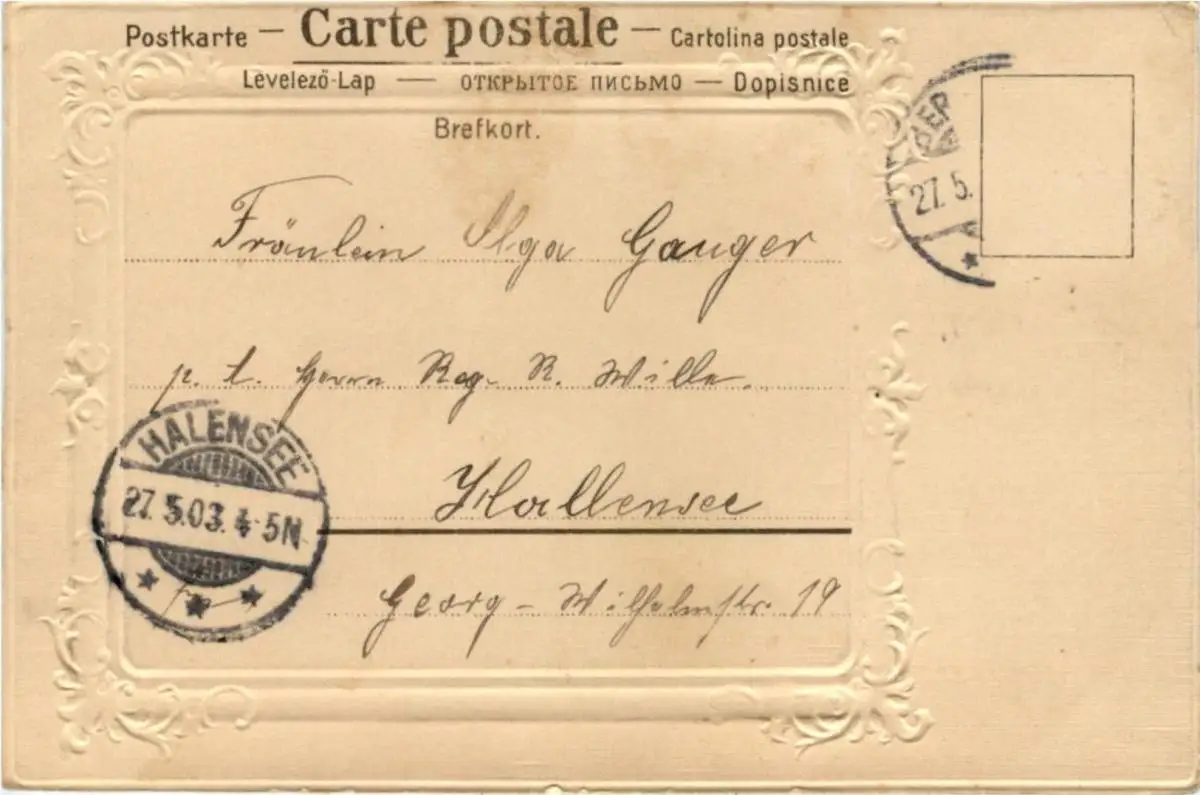 Postkarte — Carte postale — Cartolina postale
Levelező-Lap — ОТКРЫТОЕ ПИСЬМО — Dopisnice
Brefkort.
27. 5.
Fräulein Olga Gauger
p. t. Herrn Reg. R. Wille.
HALENSEE
27. 5.03. 4-5N
Hallensee
Georg-Wilhelmstr. 19